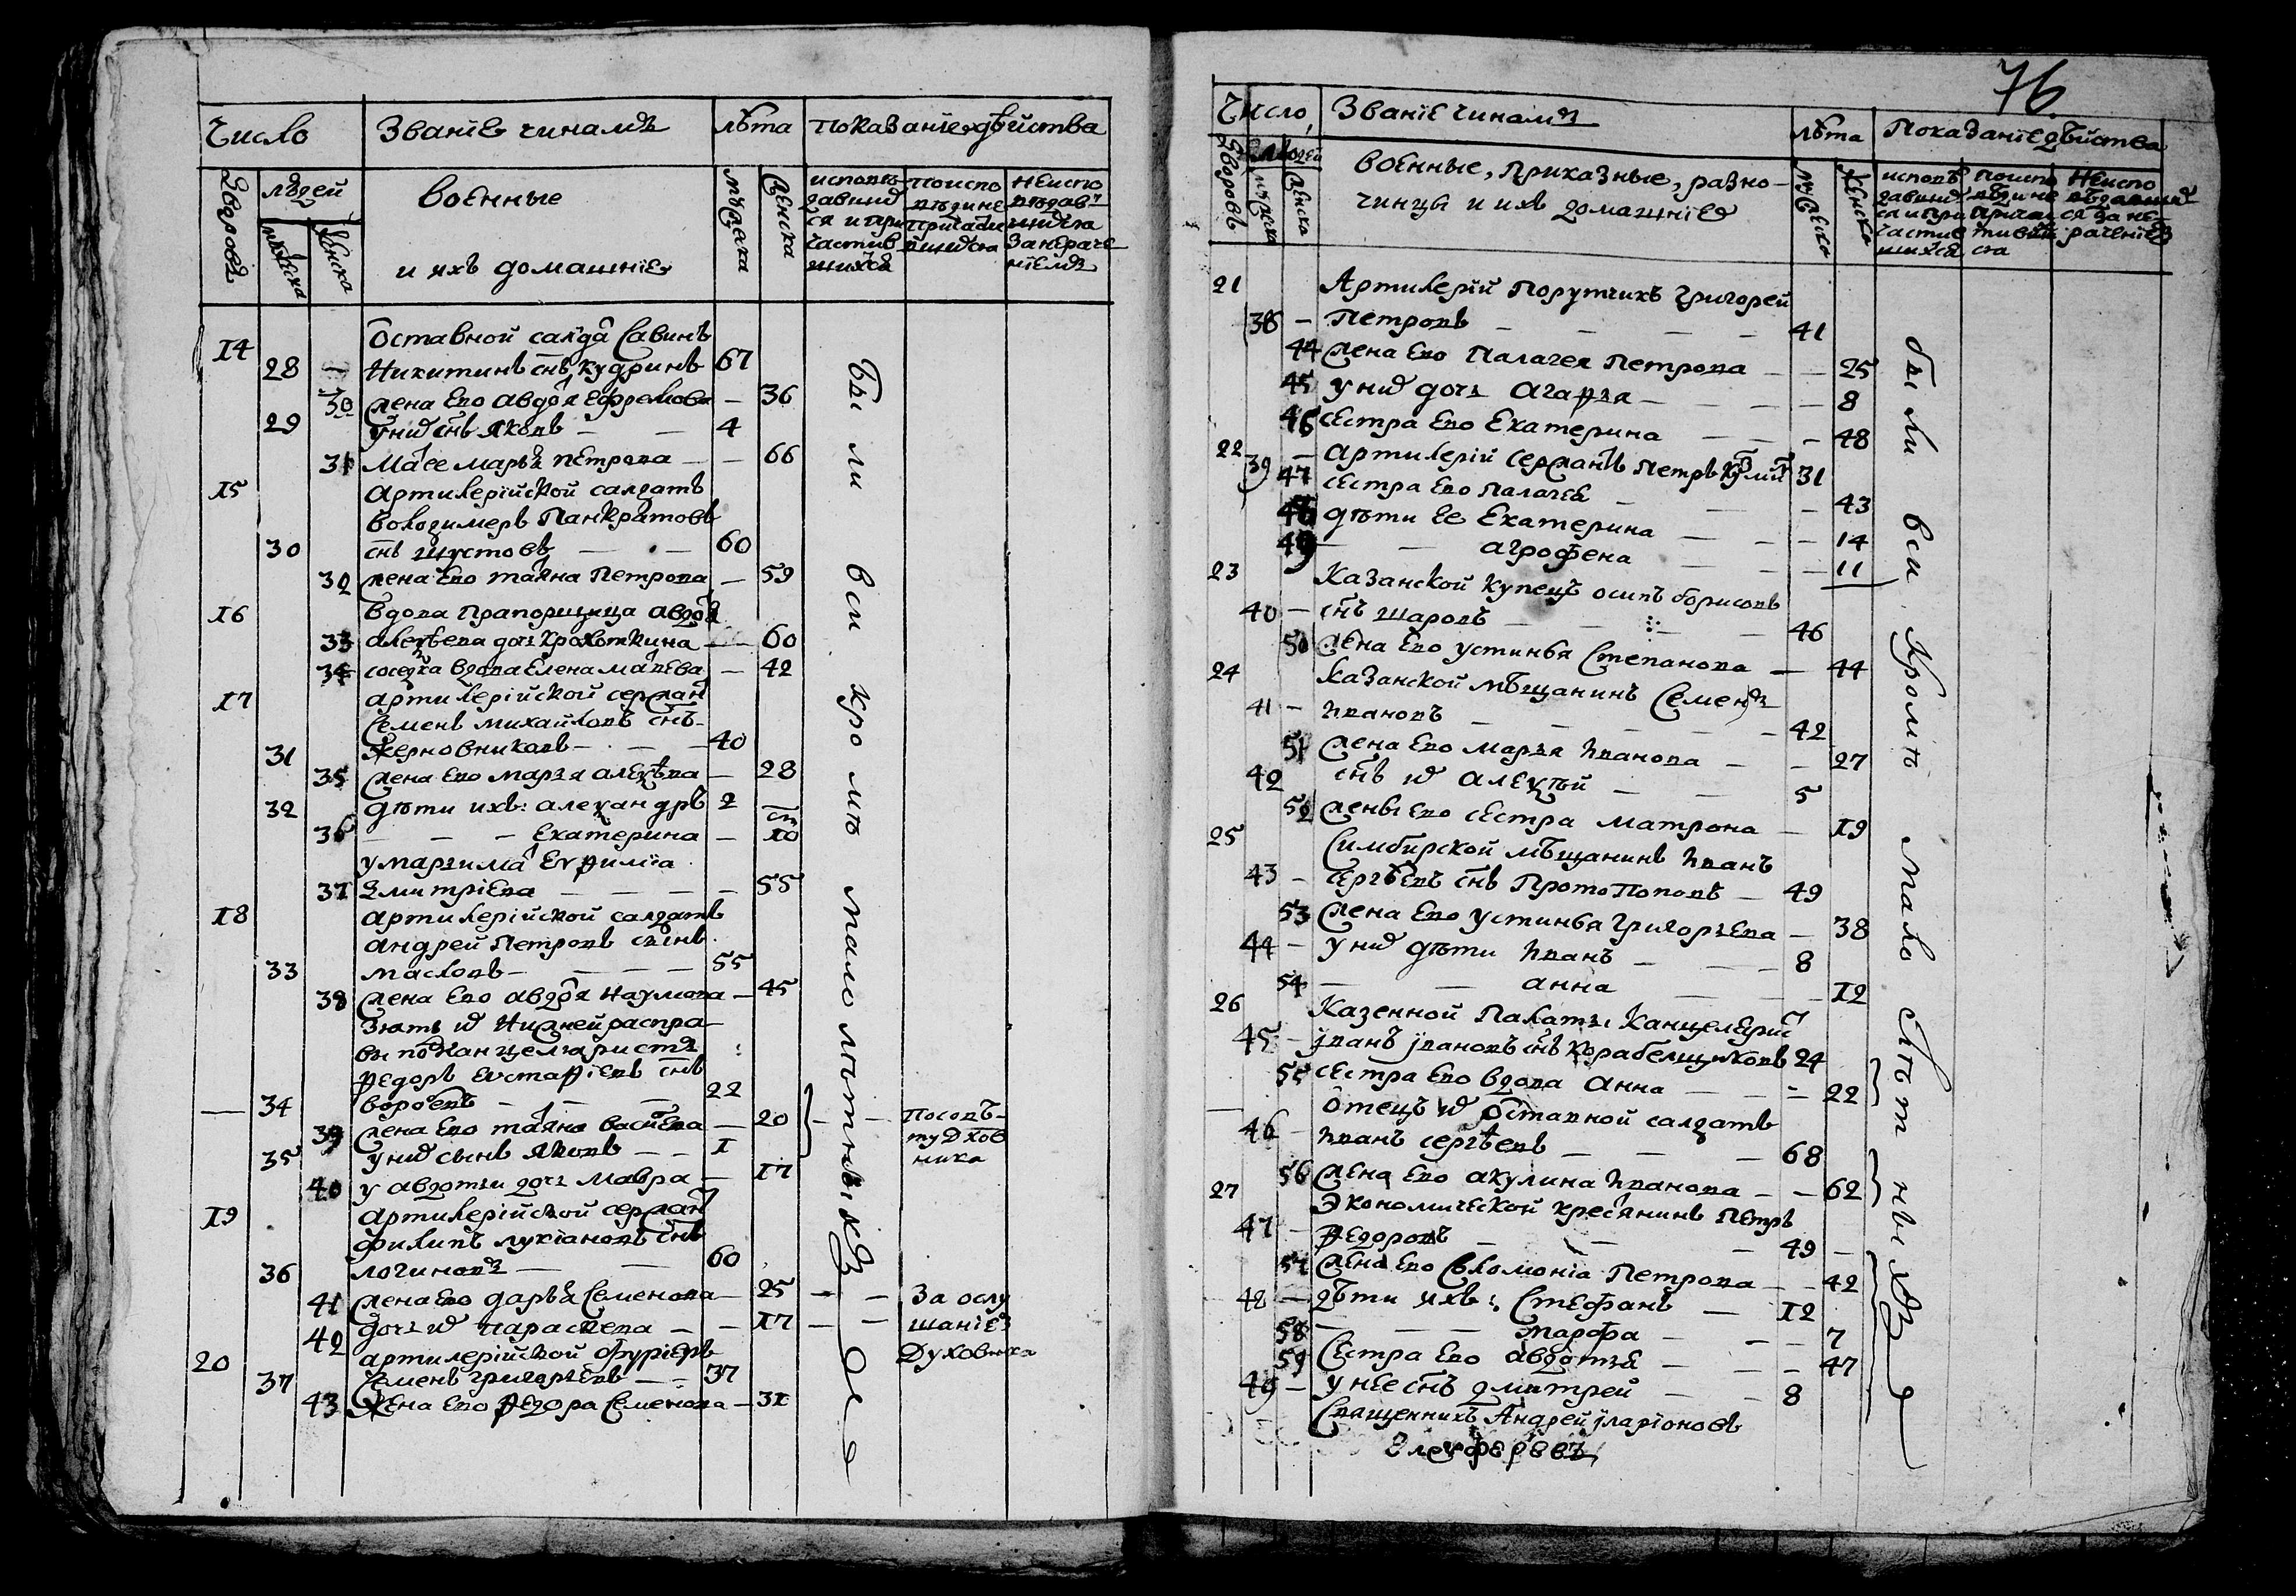 Число Званїе чинамъ лѣта показанїе действа
Дворовъ людей военные и ихъ домашнїе мужеска женска исповѣдавшихся и причастившихся по исповѣди не причастившихся не исповѣдавшихся за нераченїемъ
14 Ѻставной салда Савинъ
28 Никитинъ снъ Кудринъ 67
30 жена ево Авдоя Ефремова — 36
29 у них снъ Яковъ — — 4
31 Мае Марья Петрова — — 66
15 Артилерїйской салдатъ
Володимеръ Панкратовъ
30 снъ Шустовъ — — 60
32 жена ево Таяна Петрова — 59
16 вдова прапорщица Авдоя
33 Алеѯѣева доч Крохоткина — 60
34 соседка вдова Елена Мавѣева — 42
17 артилерїйской сержан
Семенъ Михайловъ снъ
31 Жерновниковъ — — 40
35 жена ево Марья Алеѯѣва — 28
32 дѣти ихъ: Алеѯандръ 2
36 — — Екатерина — 10
у Марьи ма Евѳимїа
37 Дмитрїева — — — — 55
18 артилерїйской салдатъ
Андрей Петровъ сынъ
33 Масловъ — — — 55
38 жена ево Авдоя Наумова — 45
Зять их Нижней распра
вы поканцеляристъ
Ѳедоръ Евстаѳїевъ снъ
— 34 Воробевъ — — — 22
39 жена ево Таяна Васиева — 20 — — по совѣ
35 у них сынъ Яковъ — — 1 ту Дхов
40 у Авдотьи доч Мавра — 17 ника
19 артилерїйской сержан
Филипъ Лукїановъ снъ
36 Логиновъ — — 60
41 жена ево Дарья Семенова — 25 — — За ослу
42 доч их Параскева — — 17 — — шанїе
20 артилерїйской фурїеръ Духовника
37 Семенъ Григорьевъ — — 37
43 Жена ево Ѳедора Семенова — 31
были вси кроме малолѣтныхъ
76.
Число Званїе чинамъ лѣта Показанїе дѣйства
Дворовъ людей мужска женска военные, приказные, разно-
чинцы и ихъ домашнїе мужеска женска исповѣдавшихся и причастившихся по исповѣди не причастившихся не исповѣдавшихся за нераченїе
21 Артилерїй порутчикъ Григорей
38 — Петровъ — — — — 41
44 жена ево Палагея Петрова — — 25
45 у них доч Агаѳья — — — — 8
46 сестра ево Екатерина — — — 48
22 39 — артилерїй сержанъ Петръ 31
47 сестра ево Палагея — — — 43
48 дѣти ее Екатерина — — — 14
49 — — агрофена — — — 11
23 Казанской купецъ Осипъ Борисовъ
40 — снъ Шаровъ — — — — 46
50 жена ево Устинья Степанова — 44
24 Казанской мѣщанинъ Семенъ
41 — Ивановъ — — — — 42
51 жена ево Марья Иванова — — 27
42 снъ их Алеѯѣй — — 5
52 жены ево сестра Матрона — 19
25 Симбирской мѣщанинъ Иванъ
43 — Сергѣевъ снъ Протопоповъ — 49
53 жена ево Устинья Григорьева — 38
44 — у них дѣти Иванъ — — — 8
54 — — анна — — — 12
26 Казенной Палаты Канцелярис
45 — Иванъ Ивановъ снъ Корабелщиковъ 24
55 сестра ево вдова Анна — — — 22
— Отецъ их Ѻставной салдатъ
46 — Иванъ Сергѣевъ — — — 68
56 жена ево Акулина Иванова — — 62
27 Экономической кресянинъ Петръ
47 — Ѳедоровъ — — — 49 —
57 жена ево Соломонїа Петрова — — 42
48 — дѣти ихъ: Стефанъ — 12
58 — — — Марфа — — — 7
59 Сестра ево Авдотья — — — 47
49 — у нее снъ Дмитрей — — 8
Священникъ Андрей Иларїоновъ
Елеуферьевъ
были вси Кромѣ Мало лѣтныхъ